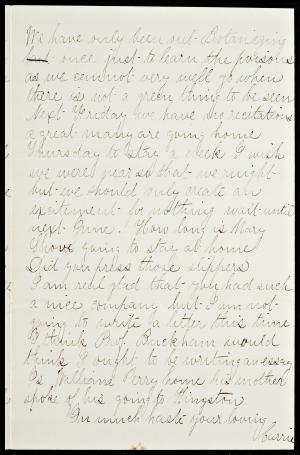 We have only been out Botanizing
but once just to learn the poisons
as we can not very well go when
there is not a green thing to be seen
Next Friday we have no recitations
a great many are going home
Thursday to stay a week I wish
we were near so that we might
but we should only create an
excitement be nothing wait until
next June! How long is Mary
Shove going to stay at home
Did you press those slippers
I am real glad that you had such
a nice company but I am not
going to write a letter this time
I think Prof. Buckham would
think I ought to be writing an essay
Is William Perry home his mother
spoke of his going to Kingston
In much haste your loving
Carrie